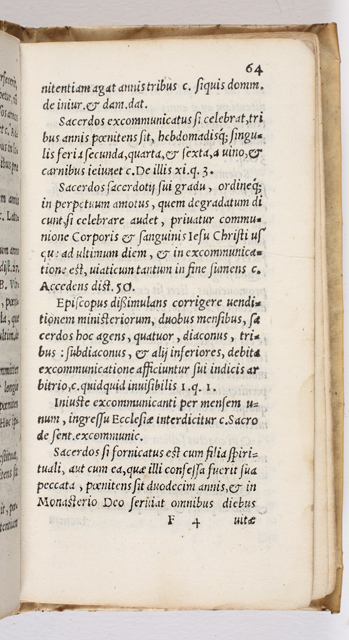 64
nitentiam agat annis tribus c. siquis domm.
de iniur. & dam. dat.
Sacerdos excommunicatus si celebrat, tri
bus annis pœnitens sit, hebdomadisq; singu-
lis feria secunda, quarta, & sexta, a uino, &
carnibus ieiunet c. De illis xi. q. 3.
Sacerdos sacerdotij sui gradu, ordineq;
in perpetuum amotus, quem degradatum di
cunt, si celebrare audet, priuatur commu-
nione Corporis & sanguinis Iesu Christi us
que ad ultimum diem, & in excommunica-
tione est, uiaticum tantum in fine sumens c.
Accedens dist. 50.
Episcopus dißimulans corrigere uendi-
tionem ministeriorum, duobus mensibus, sa
cerdos hoc agens, quatuor, diaconus, tri-
bus: subdiaconus, & alij inferiores, debita
excommunicatione afficiuntur sui iudicis ar
bitrio, c. quidquid inuisibilis 1. q. 1.
Iniuste excommunicanti per mensem u-
num, ingressu Ecclesiæ interdicitur c. Sacro
de sent. excommunic.
Sacerdos si fornicatus est cum filia spiri-
tuali, aut cum ea, quæ illi confessa fuerit sua
peccata, pœnitens sit duodecim annis, & in
Monasterio Deo seruiat omnibus diebus
F 4 uitæ